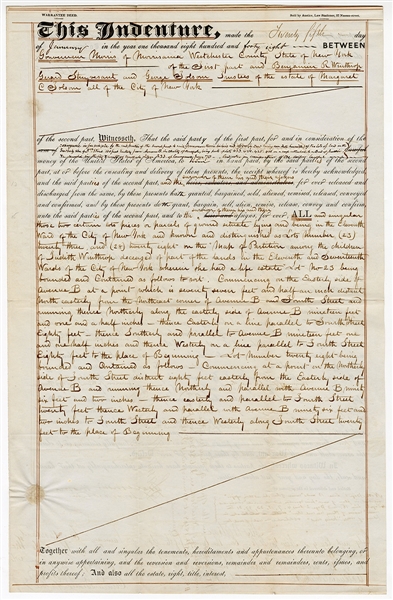 WARRANTEE DEED.
Sold by Austin, Law Stationer, 27 Nassau-street.
This Indenture, made the Twenty fifth day
of January in the year one thousand eight hundred and forty eight BETWEEN
Gouverneur Morris of Morrisania Westchester County State of New York
of the first part and Benjamin R Winthrop
Gerard Stuyvesant and George Folsom Trustees of the estate of Margaret
C Folsom all of the City of New York
of the second part, Witnesseth, That the said party of the first part, for and in consideration of the
lawful
money of the United States of America, to
part, at or before the ensealing and delivery of these presents, the receipt whereof is hereby acknowledged,
and the said parties of the second part, and the for ever released and
discharged from the same by these presents hath granted, bargained, sold, aliened, remised, released, conveyed
and confirmed, and by these presents doth grant, bargain, sell, alien, remise, release, convey and confirm,
unto the said parties of the second part, and to the assigns, for ever, ALL and singular
those two certain lots pieces or parcels of ground situate lying and being in the Eleventh
Ward of the City of New York and known and distinguished as Lots Number (23)
twenty three, and (28) twenty eight on the "Map of Partition among the children
of Judith Winthrop deceased of part of the lands in the Eleventh and Seventeenth
Wards of the City of New York whereon she had a life estate" Lot No 23 being
bounded and contained as follows to wit. Commencing on the Easterly side of
Avenue B at a point which is seventy seven feet and half an inch distant
North easterly from the Northeast corner of Avenue B and Fourth Street and
running thence Northerly along the easterly side of Avenue B nineteen feet
and one and a half inches thence Easterly on a line parallel to Fourth Street
Eighty feet thence Southerly and parallel to Avenue B nineteen feet and
one and half inches and thence Westerly on a line parallel to Fourth Street
Eighty feet to the place of Beginning Lot Number twenty eight being
bounded and contained as follows Commencing at a point on the Northerly
side of Fourth Street distant eighty feet easterly from the Easterly side of
Avenue B and running thence Northerly and parallel with Avenue B ninety
six feet and two inches thence easterly and parallel to Fourth Street
twenty feet thence Westerly and parallel with Avenue B ninety six feet and
two inches to Fourth Street and thence Westerly along Fourth Street twenty
feet to the place of Beginning
Together with all and singular the tenements, hereditaments and appurtenances thereunto belonging, or
in anywise appertaining, and the reversion and reversions, remainder and remainders, rents, issues, and
profits thereof; And also all the estate, right, title, interest,